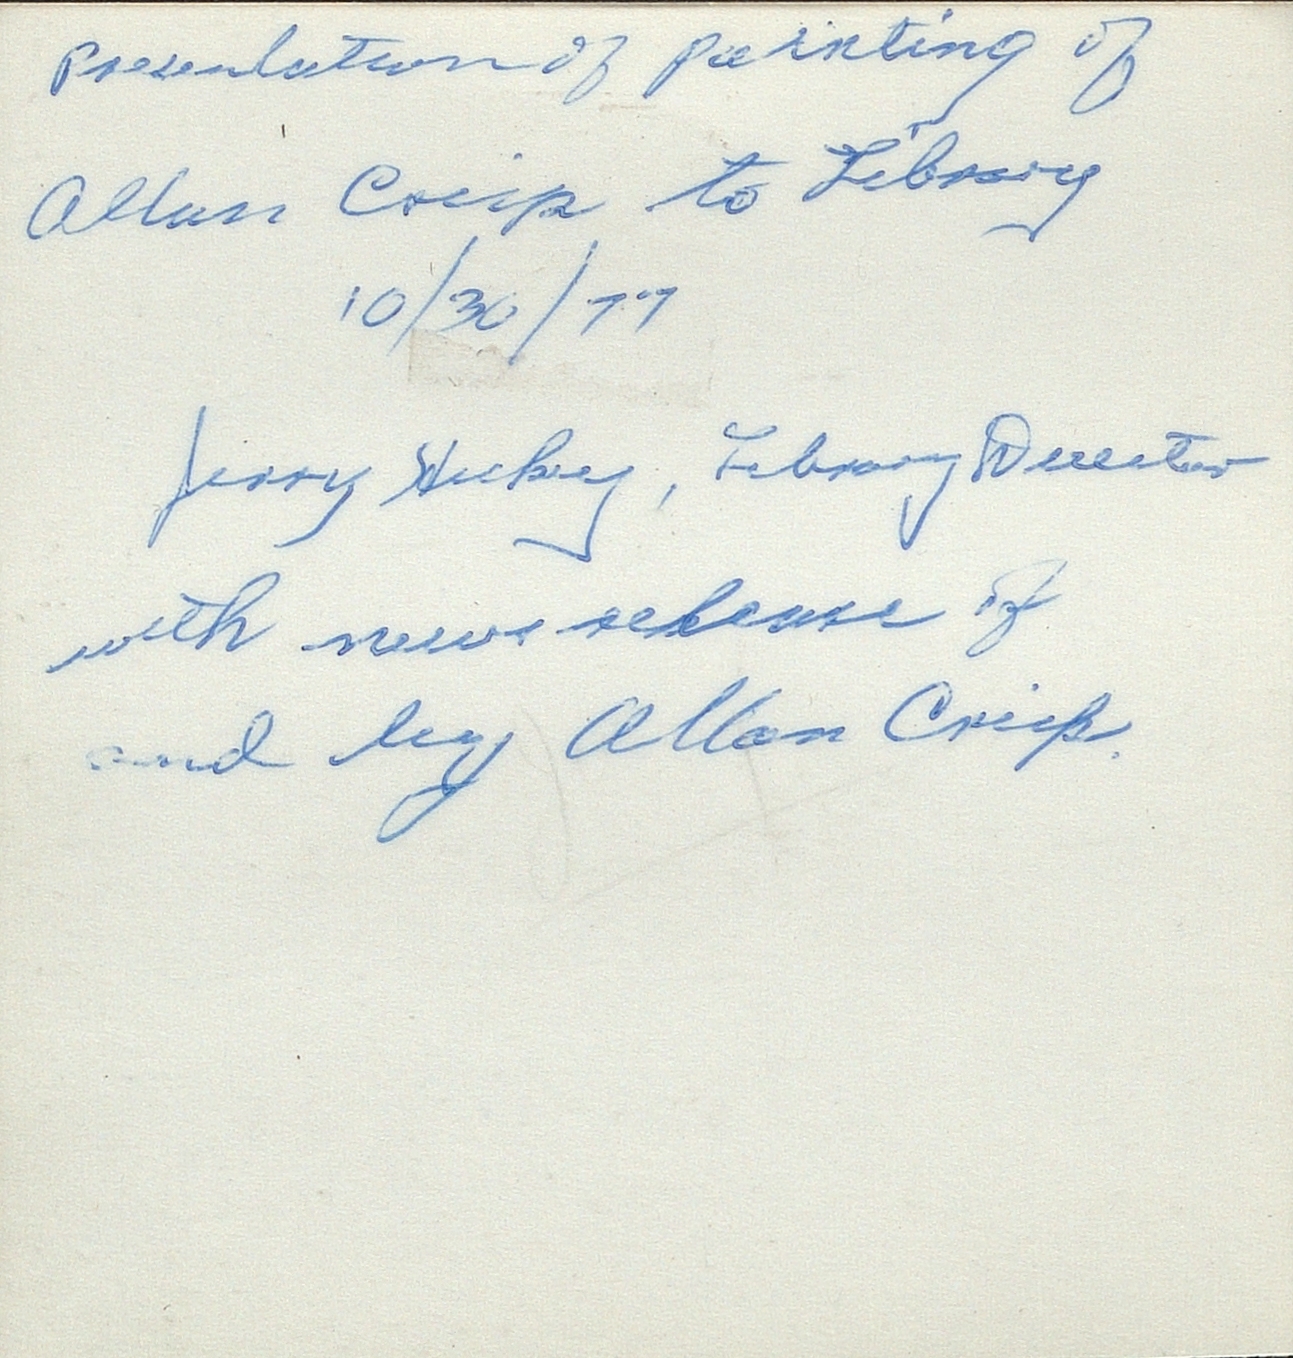 Presentation of painting of
Allan Crisp to Library
10/30/77
Jerry Hickey, Library Director
with news release of
and by Allan Crisp.